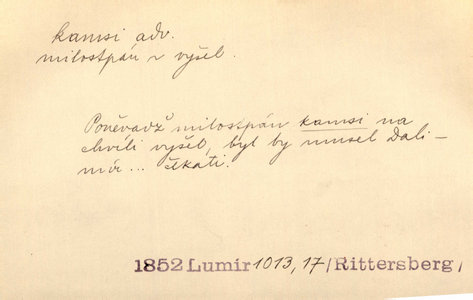 kamsi adv.
milostpán v vyšel.
Poněvadž milostpán kamsi na
chvíli vyšel, byl by musel Dali-
mír... čekati.
1852 Lumir 1013, 17 /Rittersberg/